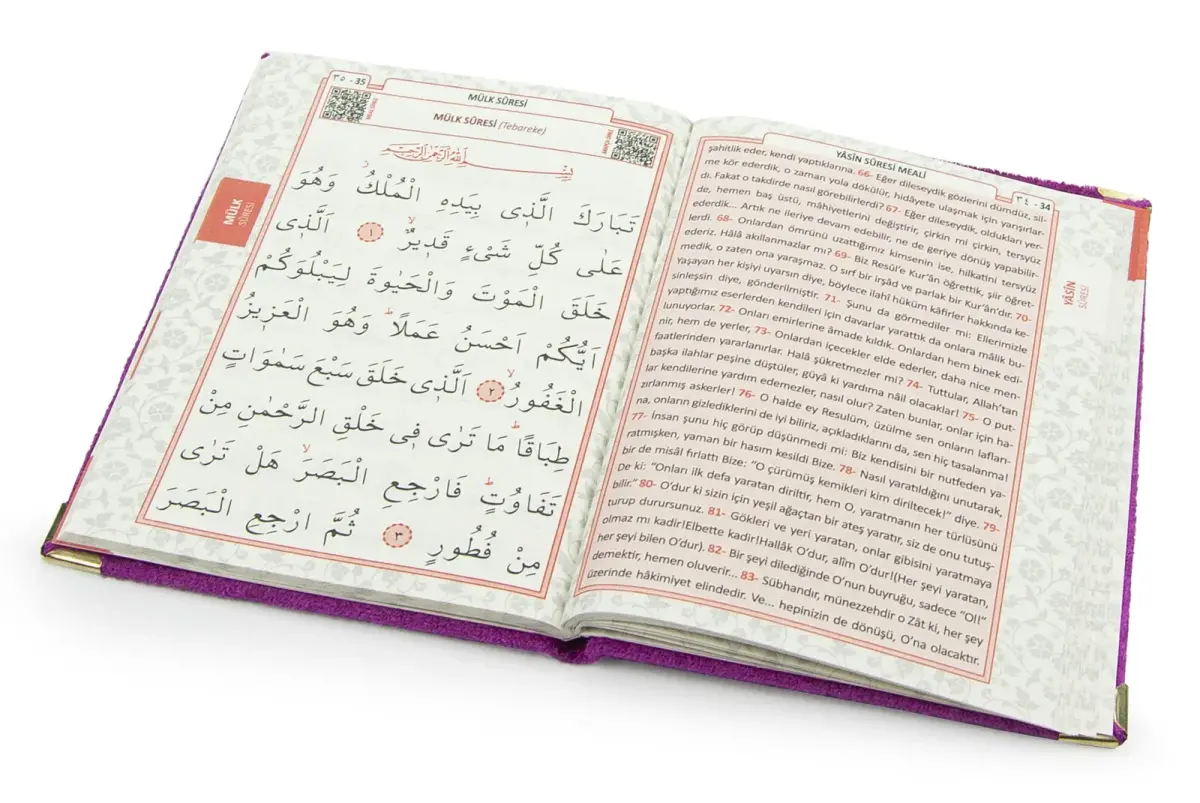 YÂSÎN SÛRESİ MEALİ
٣٤ - 34
şahitlik eder, kendi yaptıklarına. 66- Eğer dileseydik gözlerini dümdüz, sil-
me kör ederdik, o zaman yola dökülür, hidâyete ulaşmak için yarışırlar-
dı. Fakat o takdirde nasıl görebilirlerdi? 67- Eğer dileseydik, oldukları yer-
de, hemen baş üstü, mâhiyetlerini değiştirir, çirkin mi çirkin, tersyüz
ederdik... Artık ne ileriye devam edebilir, ne de geriye dönüş yapabilir-
lerdi. 68- Onlardan ömrünü uzattığımız kimsenin ise, hilkatini tersyüz
ederiz. Hâlâ akıllanmazlar mı? 69- Biz Resûl’e Kur’ân öğrettik, şiir öğret-
medik, o zaten ona yaraşmaz. O sırf bir irşâd ve parlak bir Kur’ân’dır. 70-
Yaşayan her kişiyi uyarsın diye, böylece ilahî hüküm kâfirler hakkında ke-
sinleşsin diye, gönderilmiştir. 71- Şunu da görmediler mi: Ellerimizle
yaptığımız eserlerden kendileri için davarlar yarattık da onlara mâlik bu-
lunuyorlar. 72- Onları emirlerine âmade kıldık. Onlardan hem binek edi-
nir, hem de yerler, 73- Onlardan içecekler elde ederler, daha nice men-
faatlerinden yararlanırlar. Halâ şükretmezler mi? 74- Tuttular, Allah’tan
başka ilahlar peşine düştüler, güyâ ki yardıma nâil olacaklar! 75- O put-
lar kendilerine yardım edemezler, nasıl olur? Zaten bunlar, onlar için ha-
zırlanmış askerler! 76- O halde ey Resulüm, üzülme sen onların lafları-
na, onların gizlediklerini de iyi biliriz, açıkladıklarını da, sen hiç tasalanma!
77- İnsan şunu hiç görüp düşünmedi mi: Biz kendisini bir nutfeden ya-
ratmışken, yaman bir hasım kesildi Bize. 78- Nasıl yaratıldığını unutarak,
bir de misâl fırlattı Bize: “O çürümüş kemikleri kim diriltecek!” diye. 79-
De ki: “Onları ilk defa yaratan diriltir, hem O, yaratmanın her türlüsünü
bilir.” 80- O’dur ki sizin için yeşil ağaçtan bir ateş yaratır, siz de onu tutuş-
turup durursunuz. 81- Gökleri ve yeri yaratan, onlar gibisini yaratmaya
olmaz mı kadir!Elbette kadir!Hallâk O’dur, alîm O’dur!(Her şeyi yaratan,
her şeyi bilen O’dur). 82- Bir şeyi dilediğinde O’nun buyruğu, sadece “Ol!”
demektir, hemen oluverir... 83- Sübhandır, münezzehdir o Zât ki, her şey
üzerinde hâkimiyet elindedir. Ve... hepinizin de dönüşü, O’na olacaktır.
YÂSÎN
SÛRESİ
٣٥ - 35
MÜLK SÛRESİ
MÜLK SÛRESİ (Tebareke)
بِسْمِ اللّٰهِ الرَّحْمٰنِ الرَّحٖيمِ
تَبَارَكَ الَّذٖى بِيَدِهِ الْمُلْكُ وَهُوَ
عَلٰى كُلِّ شَىْءٍ قَدٖيرٌۙ ١ اَلَّذٖى
خَلَقَ الْمَوْتَ وَالْحَيٰوةَ لِيَبْلُوَكُمْ
اَيُّكُمْ اَحْسَنُ عَمَلًاؕ وَهُوَ الْعَزٖيزُ
الْغَفُورُۙ ٢ اَلَّذٖى خَلَقَ سَبْعَ سَمٰوَاتٍ
طِبَاقًاؕ مَا تَرٰى فٖى خَلْقِ الرَّحْمٰنِ مِنْ
تَفَاوُتٍؕ فَارْجِعِ الْبَصَرَۙ هَلْ تَرٰى
مِنْ فُطُورٍ ٣ ثُمَّ ارْجِعِ الْبَصَرَ
MÜLK
SÛRESİ